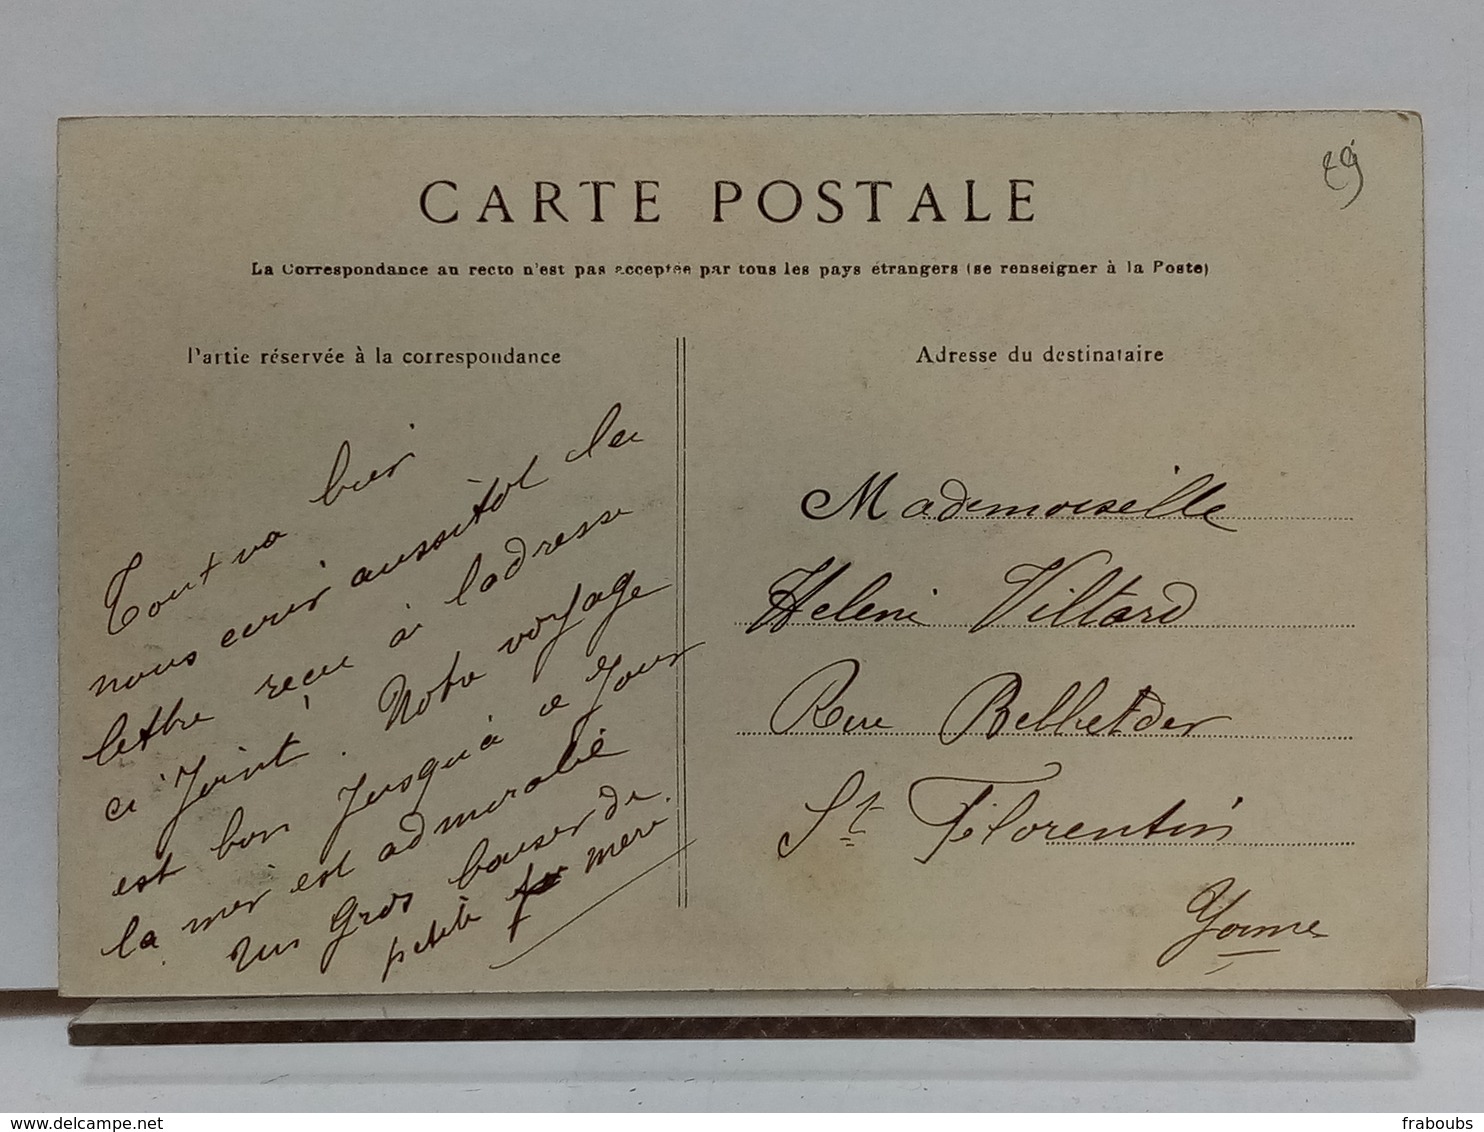 29
CARTE POSTALE
La Correspondance au recto n'est pas acceptée par tous les pays étrangers (se renseigner à la Poste)
Partie réservée à la correspondance
Adresse du destinataire
Tout va bien
nous ecrir aussitot la
lettre reçue à ladresse
ci Joint. Notre voyage
est bon Jusqu'à ce Jour
la mer est admirable
un Gros baiser de
petite mere
Mademoiselle
Helene Villard
Rue
St Florentin
Yonne
fraboubs